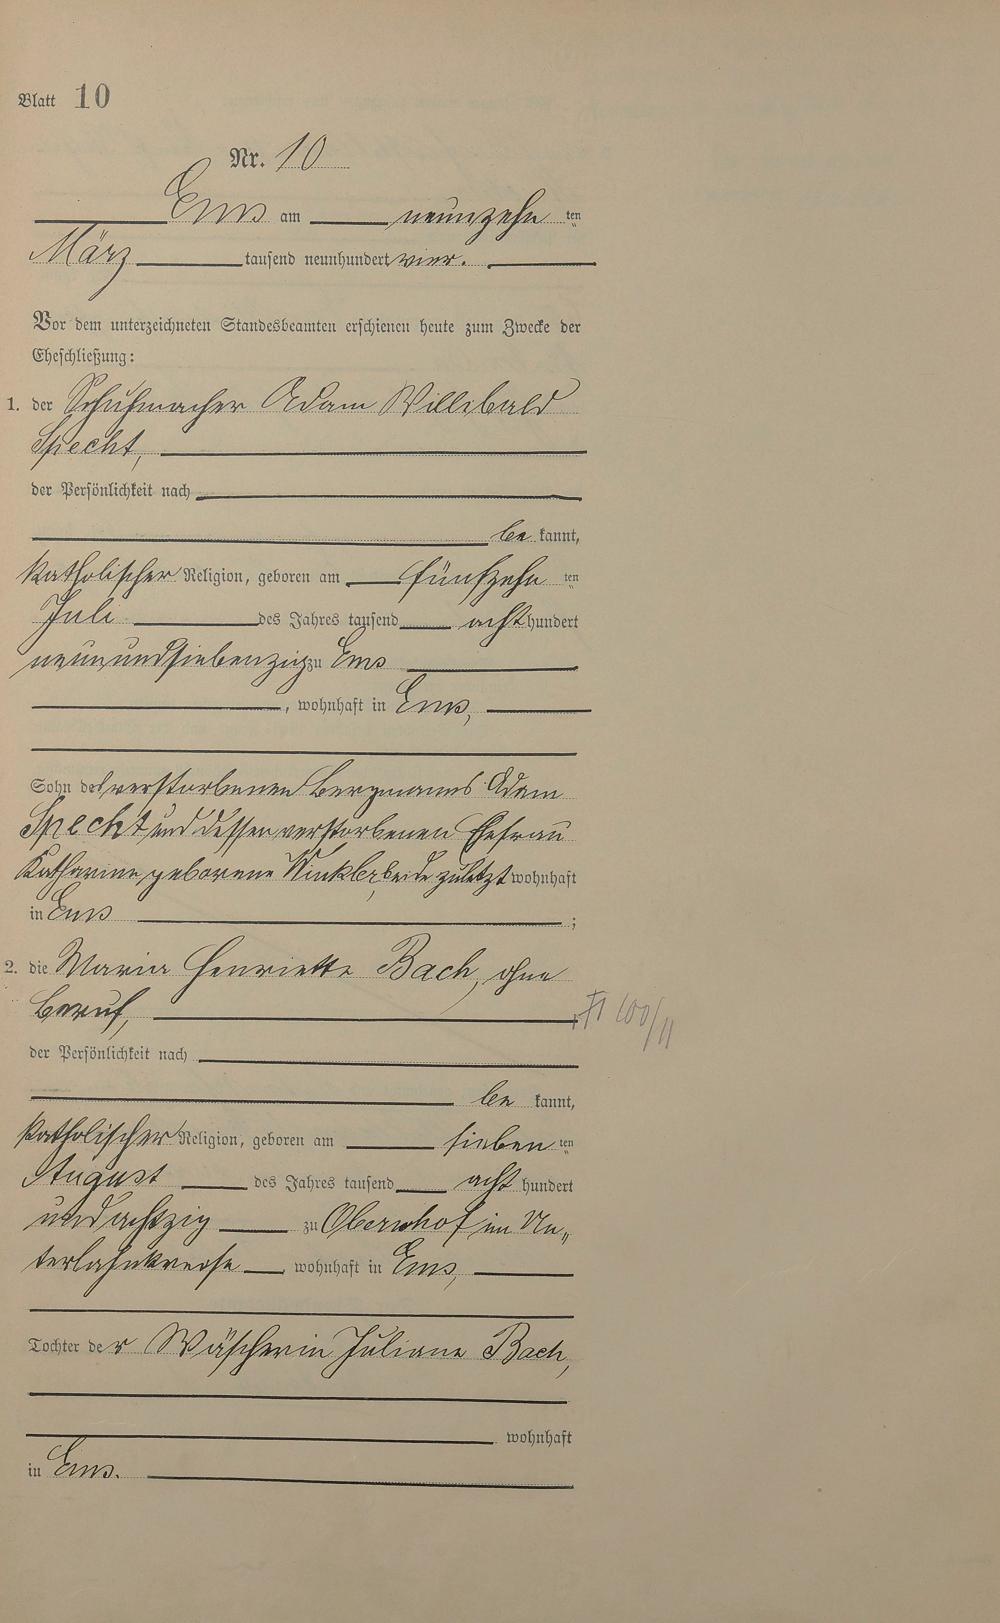 Blatt 10
Nr. 10
Ems am neunzehn ten
März tausend neunhundert vier.
Vor dem unterzeichneten Standesbeamten erschienen heute zum Zwecke der
Eheschließung:
1. der Schuhmacher Adam Willibald
Specht,
der Persönlichkeit nach
be kannt,
katholischer Religion, geboren am fünfzehn ten
Juli des Jahres tausend acht hundert
neunundsiebenzig zu Ems
, wohnhaft in Ems,
Sohn des verstorbenen Bergmanns Adam
Specht und dessen verstorbenen Ehefrau
Katharine geborene Winkler, beide zuletzt wohnhaft
in Ems ;
2. die Maria Henriette Bach, ohne
Beruf,
der Persönlichkeit nach
be kannt,
katholischer Religion, geboren am sieben ten
August des Jahres tausend acht hundert
undachtzig zu Obernhof im Un„
terlahnkreise, wohnhaft in Ems,
Tochter der Wäscherin Juliane Bach,
wohnhaft
in Ems.